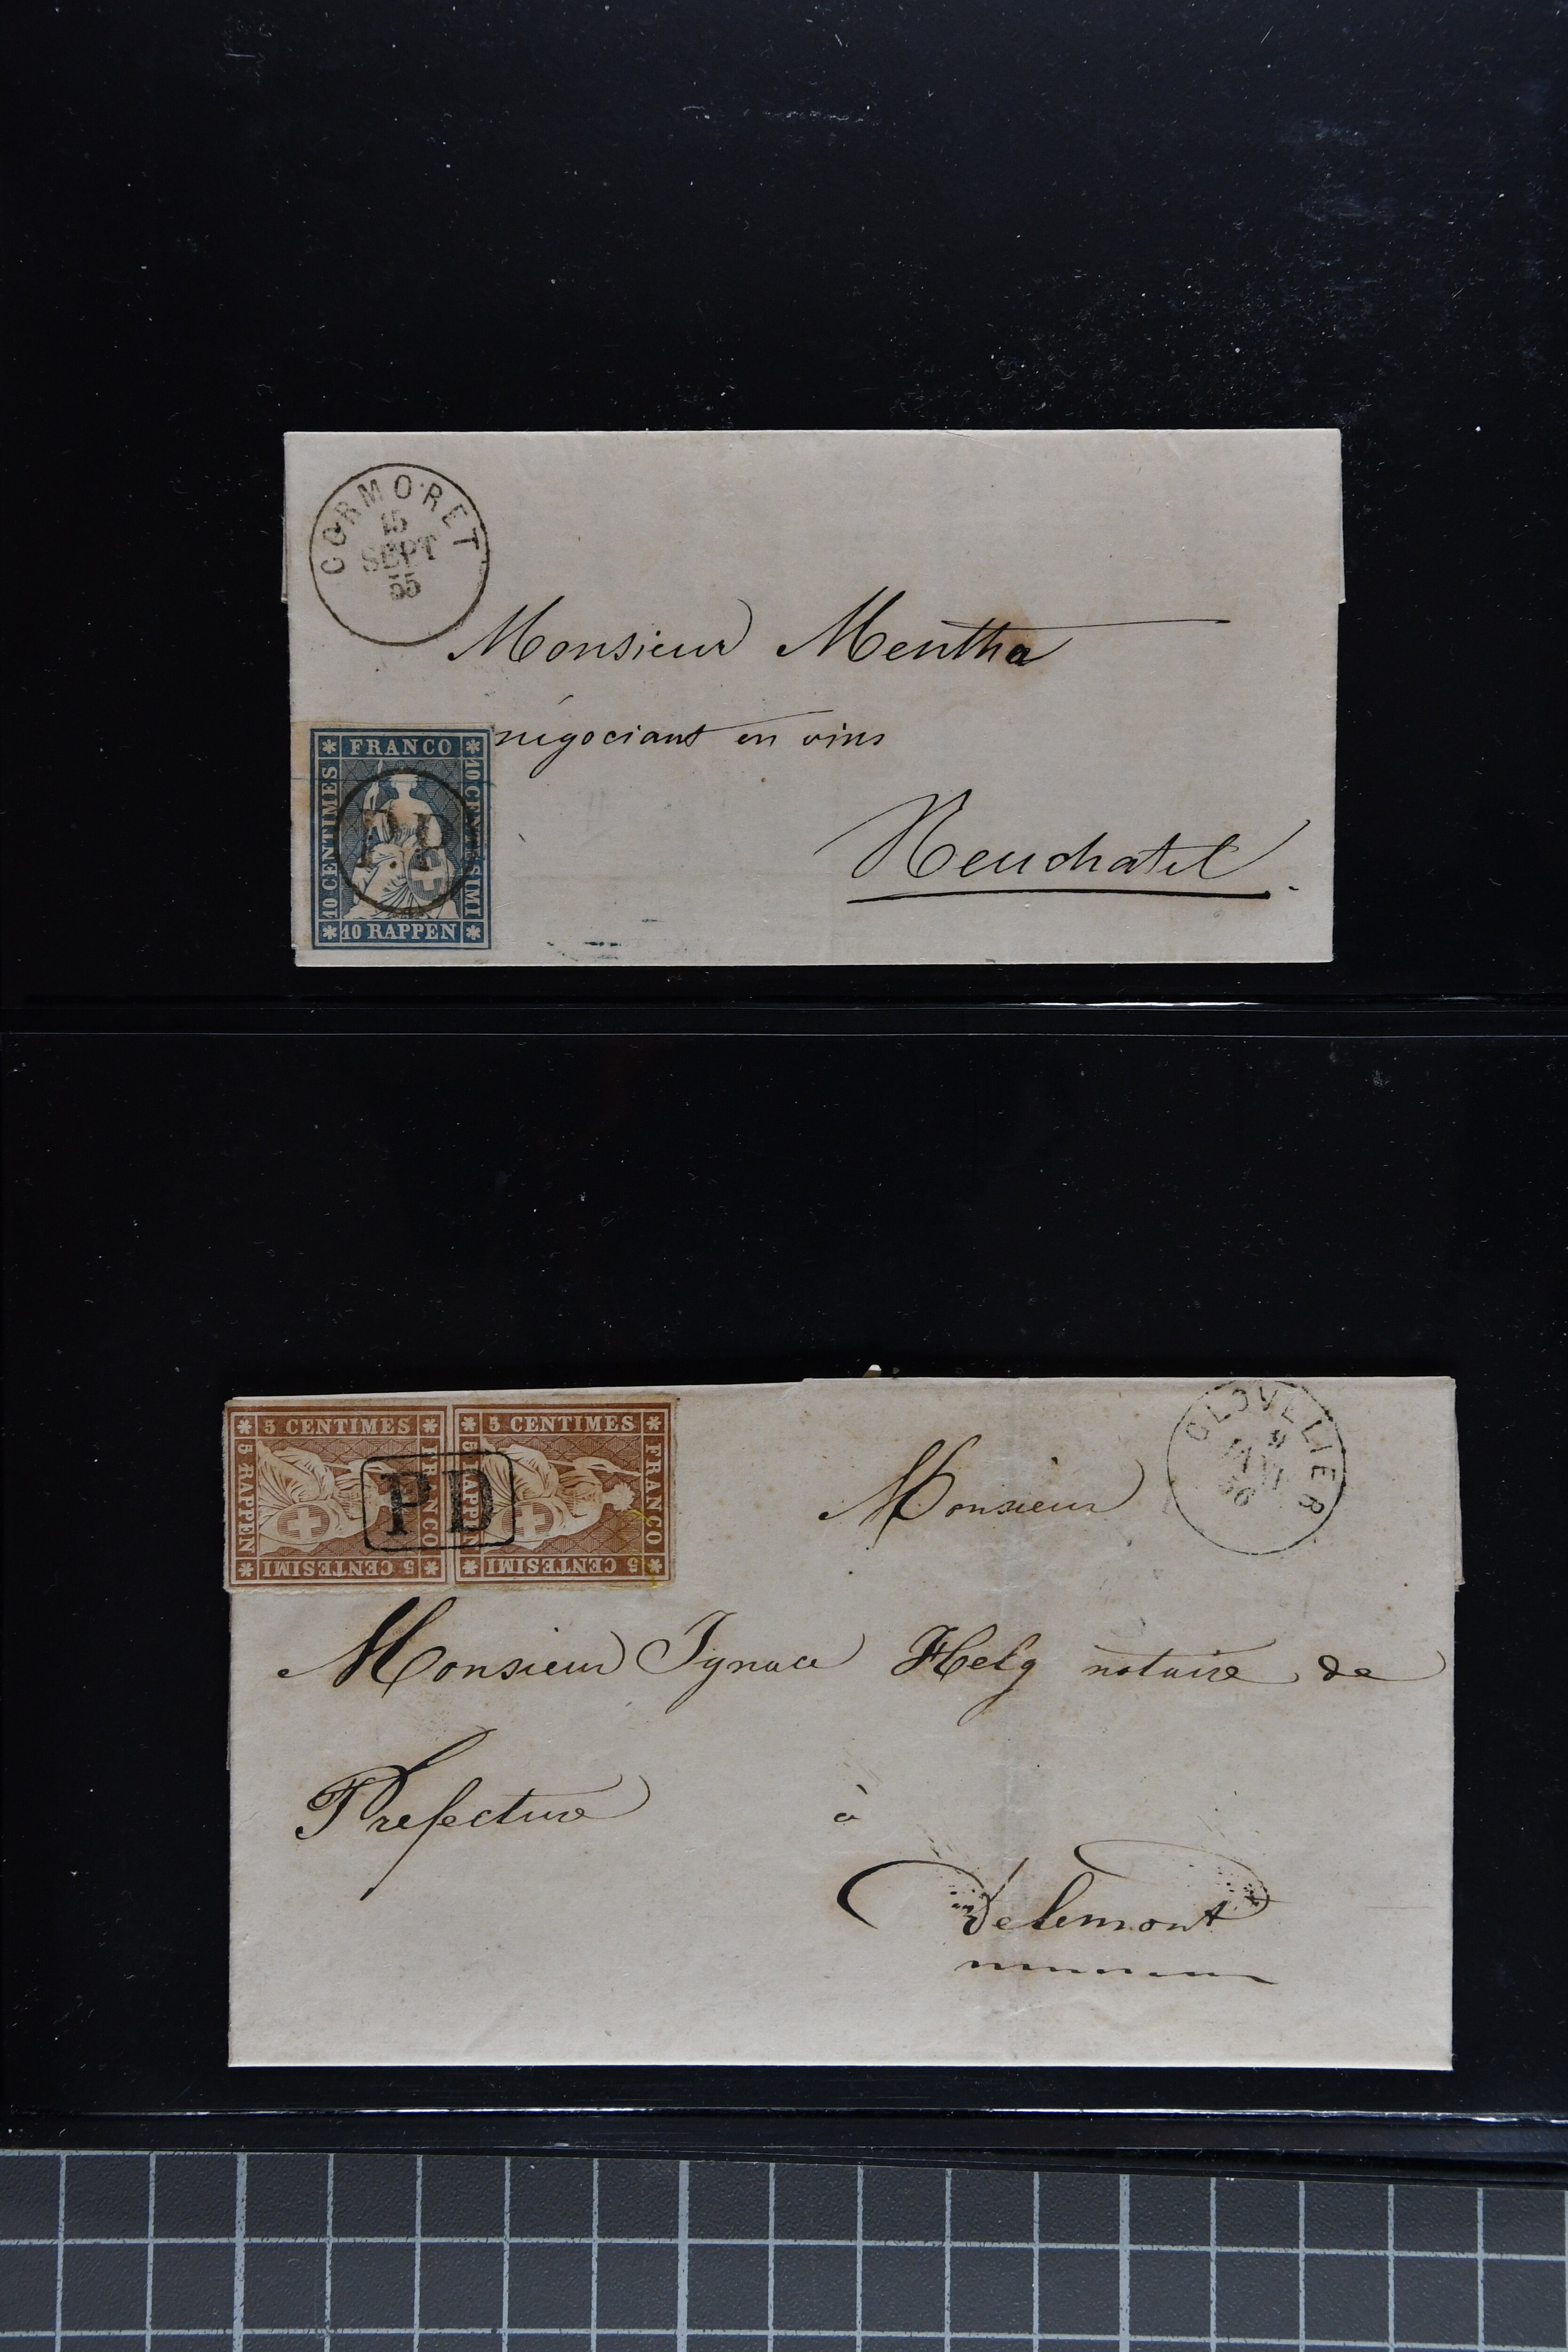 CORMORET
15
SEPT
55
Monsieur Mentha
négociant en vins
Neuchatel
FRANCO
10 CENTIMES
10 CENTESIMI
10 RAPPEN
PD
5 CENTIMES
5 RAPPEN
FRANCO
5 CENTESIMI
5 CENTIMES
5 RAPPEN
FRANCO
5 CENTESIMI
PD
GLOVELIER
9
56
Monsieur
Monsieur Ignace Helg notaire de
Prefecture à
Delemont